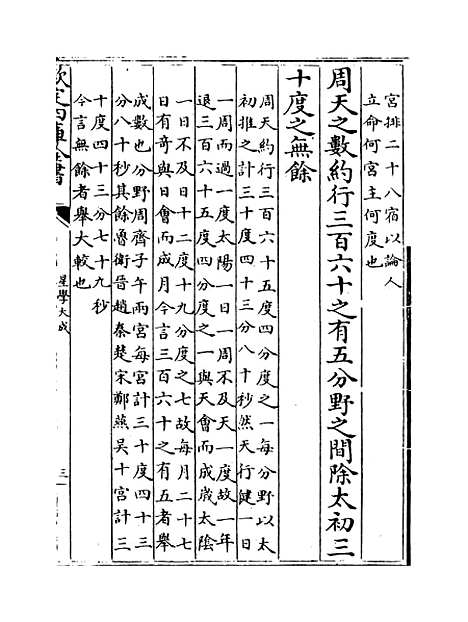 宮排二十八宿以論人
立命何宮主何度也
周天之數約行三百六十之有五分野之間除太初三
十度之無餘
周天約行三百六十五度四分度之一每分野以太
初推之計三十度四十三分八十秒然天行健一日
一周而過一度太陽一日一周不及天一度故一年
退三百六十五度四分度之一與天會而成歲太陰
一日不及日十二度十九分度之七故每月二十七
日有奇與日會而成月今言三百六十之有五者舉
成數也分野周齊子午兩宮每宮計三十度四十三
分八十秒其餘魯衛晉趙秦楚宋鄭燕吳十宮計三
十度四十三分七十九秒
今言無餘者舉大較也
欽定四庫全書
星學大成
三